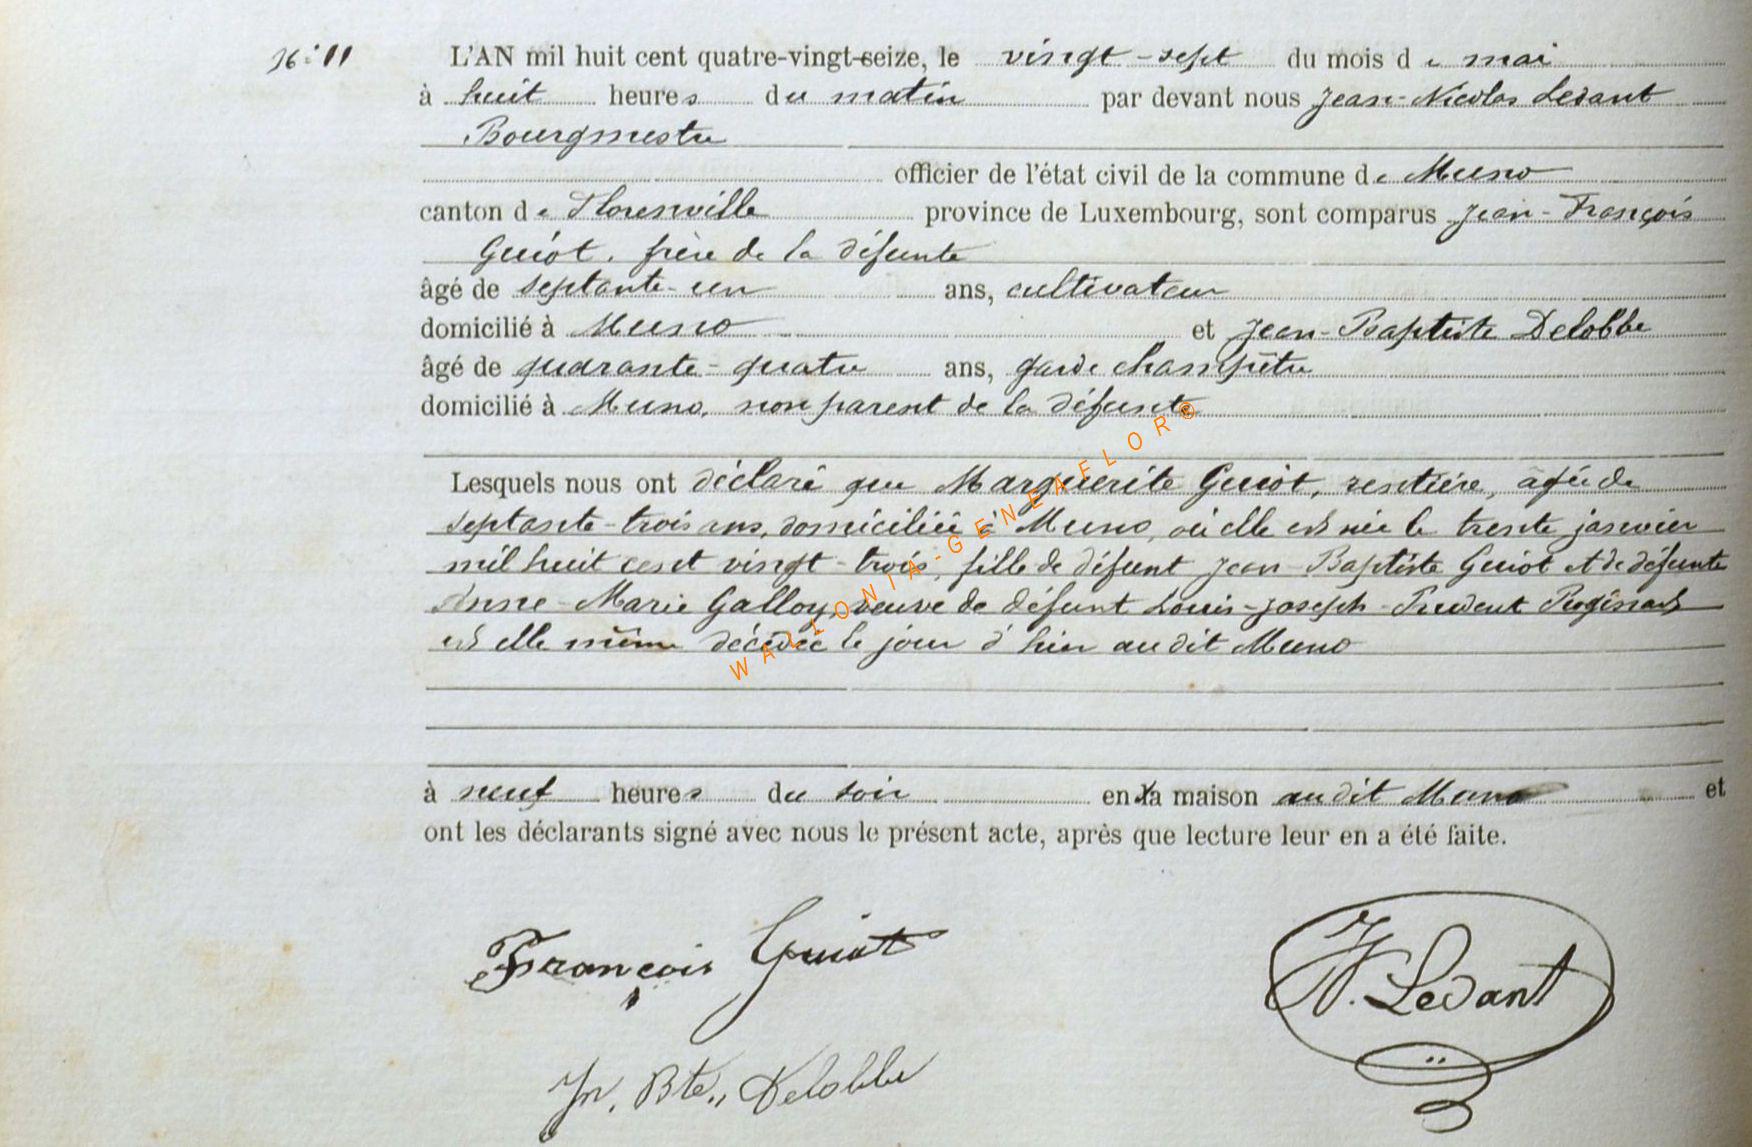 N° 11
L'AN mil huit cent quatre-vingt-seize, le vingt-sept du mois de mai
à huit heures du matin par devant nous Jean-Nicolas Ledant
Bourgmestre
officier de l'état civil de la commune de Muno
canton de Florenville province de Luxembourg, sont comparus Jean-François
Guiot, frère de la défunte
âgé de septante-un ans, cultivateur
domicilié à Muno et Jean-Baptiste Delobbe
âgé de quarante-quatre ans, garde champêtre
domicilié à Muno, non parent de la défunte
Lesquels nous ont déclaré que Marguerite Guiot, rentière, âgée de
septante-trois ans, domiciliée à Muno, où elle est née le trente janvier
mil huit cent vingt-trois, fille de défunt Jean-Baptiste Guiot et de défunte
Anne-Marie Galloy, veuve de défunt Louis-Joseph-Prudent Poginard
est elle même décédée le jour d'hier au dit Muno
à neuf heures du soir en la maison au dit Muno et
ont les déclarants signé avec nous le présent acte, après que lecture leur en a été faite.
François Guiot
N. Ledant
Jn. Bte,, Delobbe
WALLONIA-GENEAFLOR®